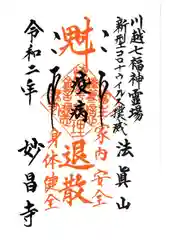 川越七福神霊場
新型コロナウイルス横…
法眞山
妙昌寺
家内安全
疫病
退散
身体健全
令和二年